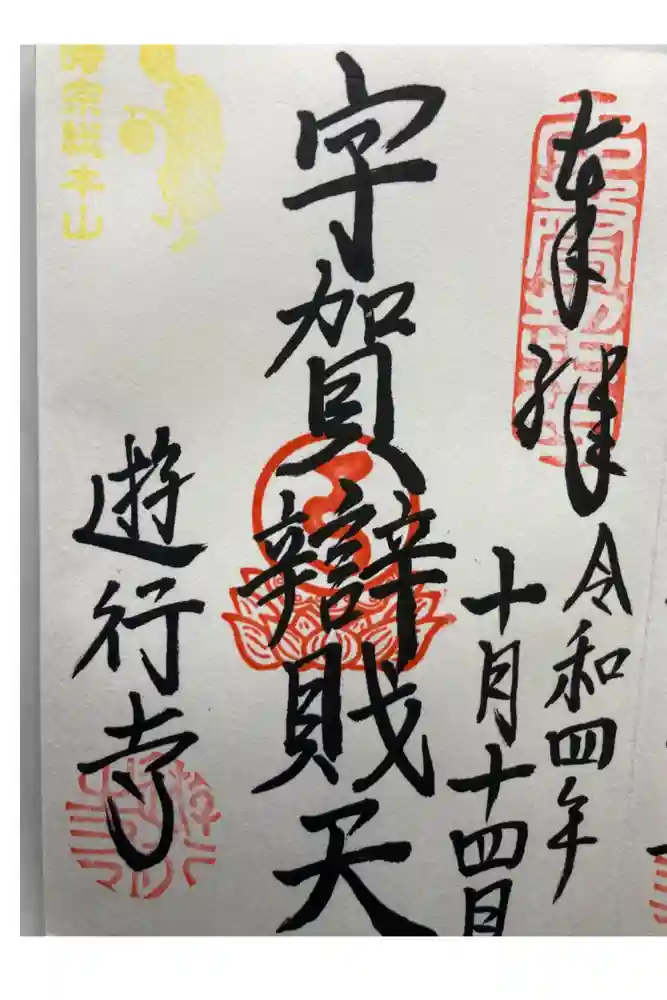 奉拝
令和四年
十月十四日
宇賀辯財天
遊行寺
時宗総本山